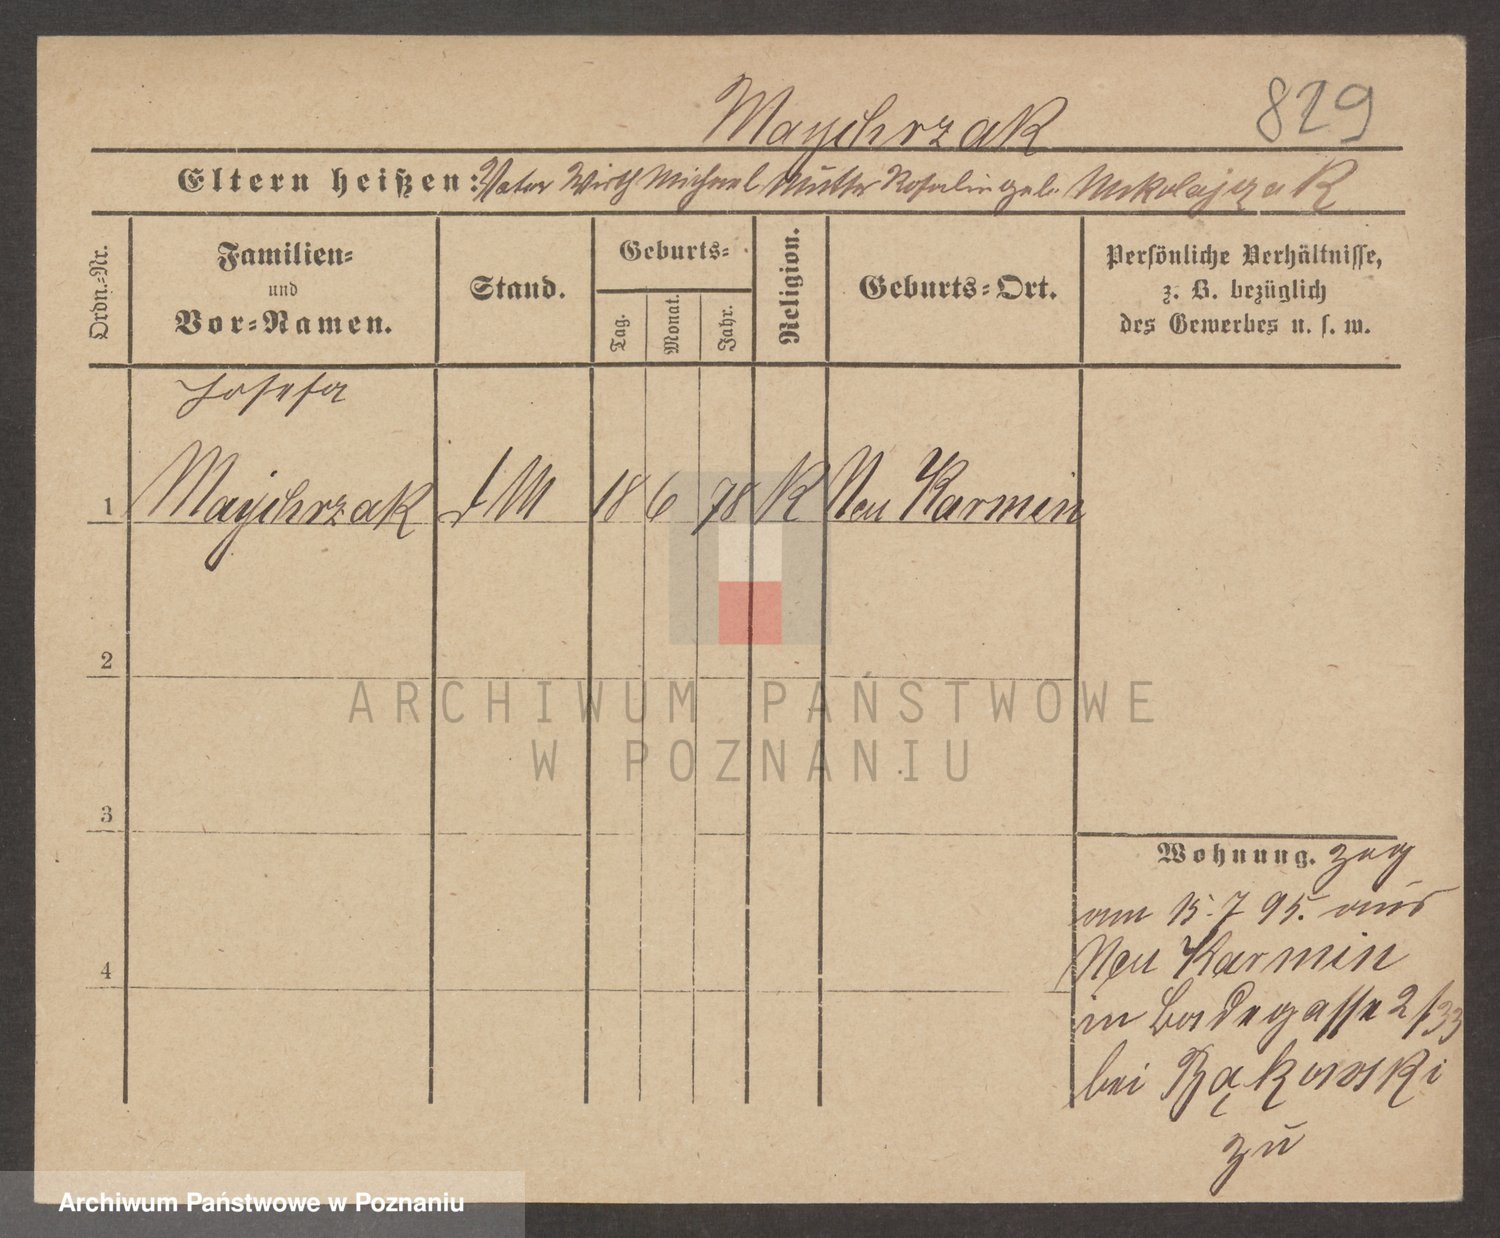 Maychrzak
829
Eltern heißen: Vater Wirth Michael Mutter Rosalie geb. Mikolajczak
Ordn.-Nr.
Familien-
und
Vor-Namen.
Stand.
Geburts-
Tag.
Monat.
Jahr.
Religion.
Geburts-Ort.
Persönliche Verhältnisse,
z. B. bezüglich
des Gewerbes u. s. w.
Josefa
1 Maychrzak d M 18 6 78 K Neu Karmin
2
3
4
Wohnung. zog
am 15.7 95. aus
Neu Karmin
in Badegasse 2/33
bei Bąkowski
zu
ARCHIWUM PAŃSTWOWE
W POZNANIU
Archiwum Państwowe w Poznaniu